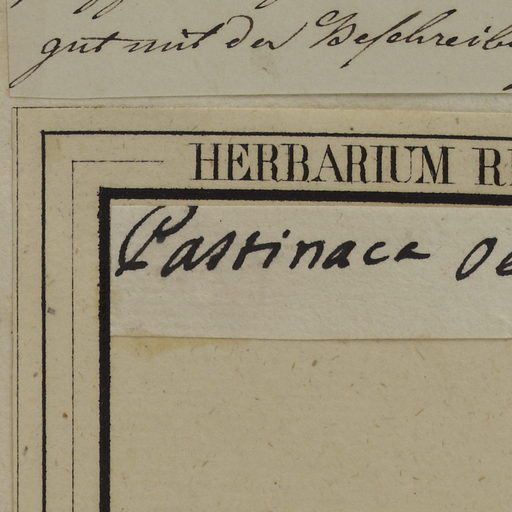 gut mit der Beschreib
HERBARIUM R
Pastinaca oe